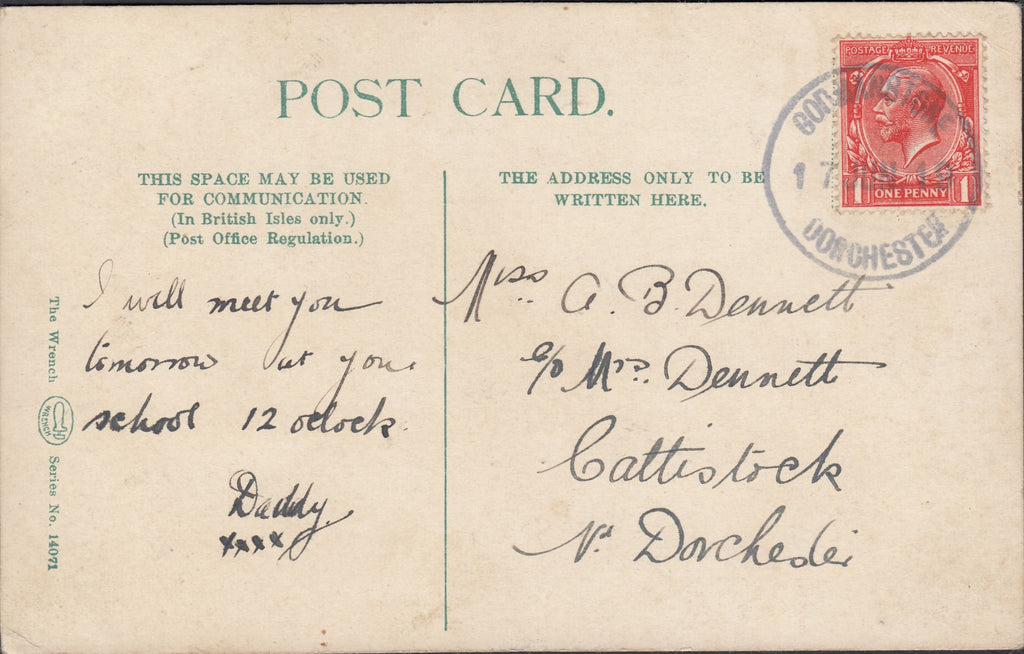 POST CARD.
THIS SPACE MAY BE USED
FOR COMMUNICATION.
(In British Isles only.)
(Post Office Regulation.)
THE ADDRESS ONLY TO BE
WRITTEN HERE.
POSTAGE REVENUE
ONE PENNY
1 1
17
DORCHESTER
I will meet you
tomorrow at you.
school 12 oclock.
Daddy.
xxxx
Miss. A. B. Dennett
c/o Mrs. Dennett
Cattistock
Nr. Dorchester
The Wrench
WRENCH
Series No. 14071